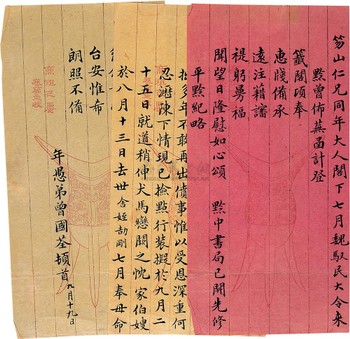 笏山仁兄同年大人閣下七月魏馭民大令来
黔曾佈蕪函計登
籤閣頃奉
惠牋備承
遠注籍審
禔躬曼福
聞望日隆慰如心頌 黔中書局已開先修
平黔紀略
拙多年不敢再出債事惟以受恩深重何
忍遯陳下情現已撿點行裝擬於九月二
十五日就道稍伸犬馬戀闕之忱家伯嫂
於八月十三日去世舍姪劼剛七月奉母命
台安惟希
朗照不備
年愚弟曾國荃頓首 九月十九日